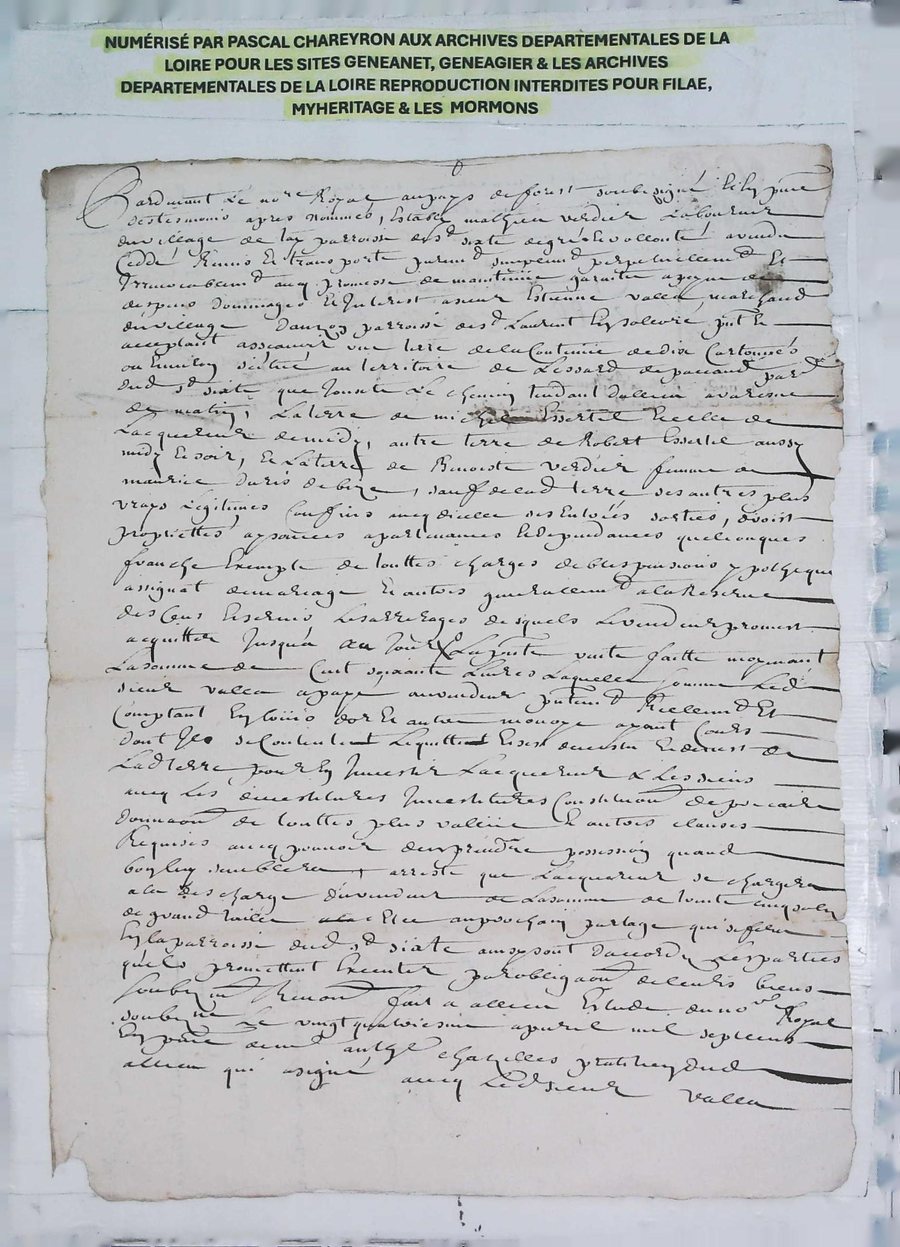 NUMÉRISÉ PAR PASCAL CHAREYRON AUX ARCHIVES DEPARTEMENTALES DE LA
LOIRE POUR LES SITES GENEANET, GENEAGIER & LES ARCHIVES
DEPARTEMENTALES DE LA LOIRE REPRODUCTION INTERDITES POUR FILAE,
MYHERITAGE & LES MORMONS
Pardevant Le no.re Royal au pays de forest soubzsigné Et En pnce
des tesmoins apres nommés, Estably mathieu verdier Laboureur
du village de parroisse de st sixte de gré Et vollonté a vendu
ceddé Remis Et transporte purem.t simplem.t perpetuellem.t Et
Irrevocablem.t avec promesse de maintenüe garantie a peyne de
despens Dommages Et Interest a sieur Estienne valla marchand
du village parroisse de st Laurent pnt Et
acceptant assavoir une terre de la Contenüe de dix Cartonnés
ou Environ scitué au territoire de Lessard
dud st sixte que Jouxte Le chemin tendant dallieu a
de matin, La terre de michel Essertel Et celle de
Lacquereur de midy, autre terre de Robert Essertel aussy
midy Et soir, Et La terre de Benoiste verdier femme de
maurice de bize, sauf de lad terre ses autres plus
vrays Legitimes Confins avec dicelle ses Entrées sorties, droits
proprietés aysances apartenances Et dependances quelconques
franche Exempte de touttes charges debtes pensions ypotheque
assignat de mariage Et autres generallem.t a la Reserve
des Cens Et servis Les arrerages desquels Le vendeur promest
acquitter Jusqua au Jour, La pnte vente faitte moyenant
La somme de Cent soixante Livres Laquelle somme Led
sieur valla a payé au vendeur pntem.t Reellem.t Et
Comptant En Louis dor Et autre monoye ayant Cours
dont Il se Contente Et quitte Et sest devestu Et demest de
Lad terre pour En Investir Lacquereur & Les siens
avec Les devestitures Investitures Constitution de precaire
donnaon de touttes plus vallüe Et autres clauses
Requises avec pouvoir den prendre possession quand
bon luy semblera, arresté que Lacquereur se chargera
a la descharge du vendeur de La somme de trente cinq sols
de grand taille au prochain partage qui se fera
En la parroisse dud st sixte ainsy sont daccord Les parties
quils promettent Executer par obligaon de leurs biens
soubzmi Renon fait a allieu Estude du no.re Royal
soubzné Le vingt quatriesme apvril mil sept cens
En pnce de m.e anth.e chazelles praticien dud
allieu qui a signé avec Led sieur valla